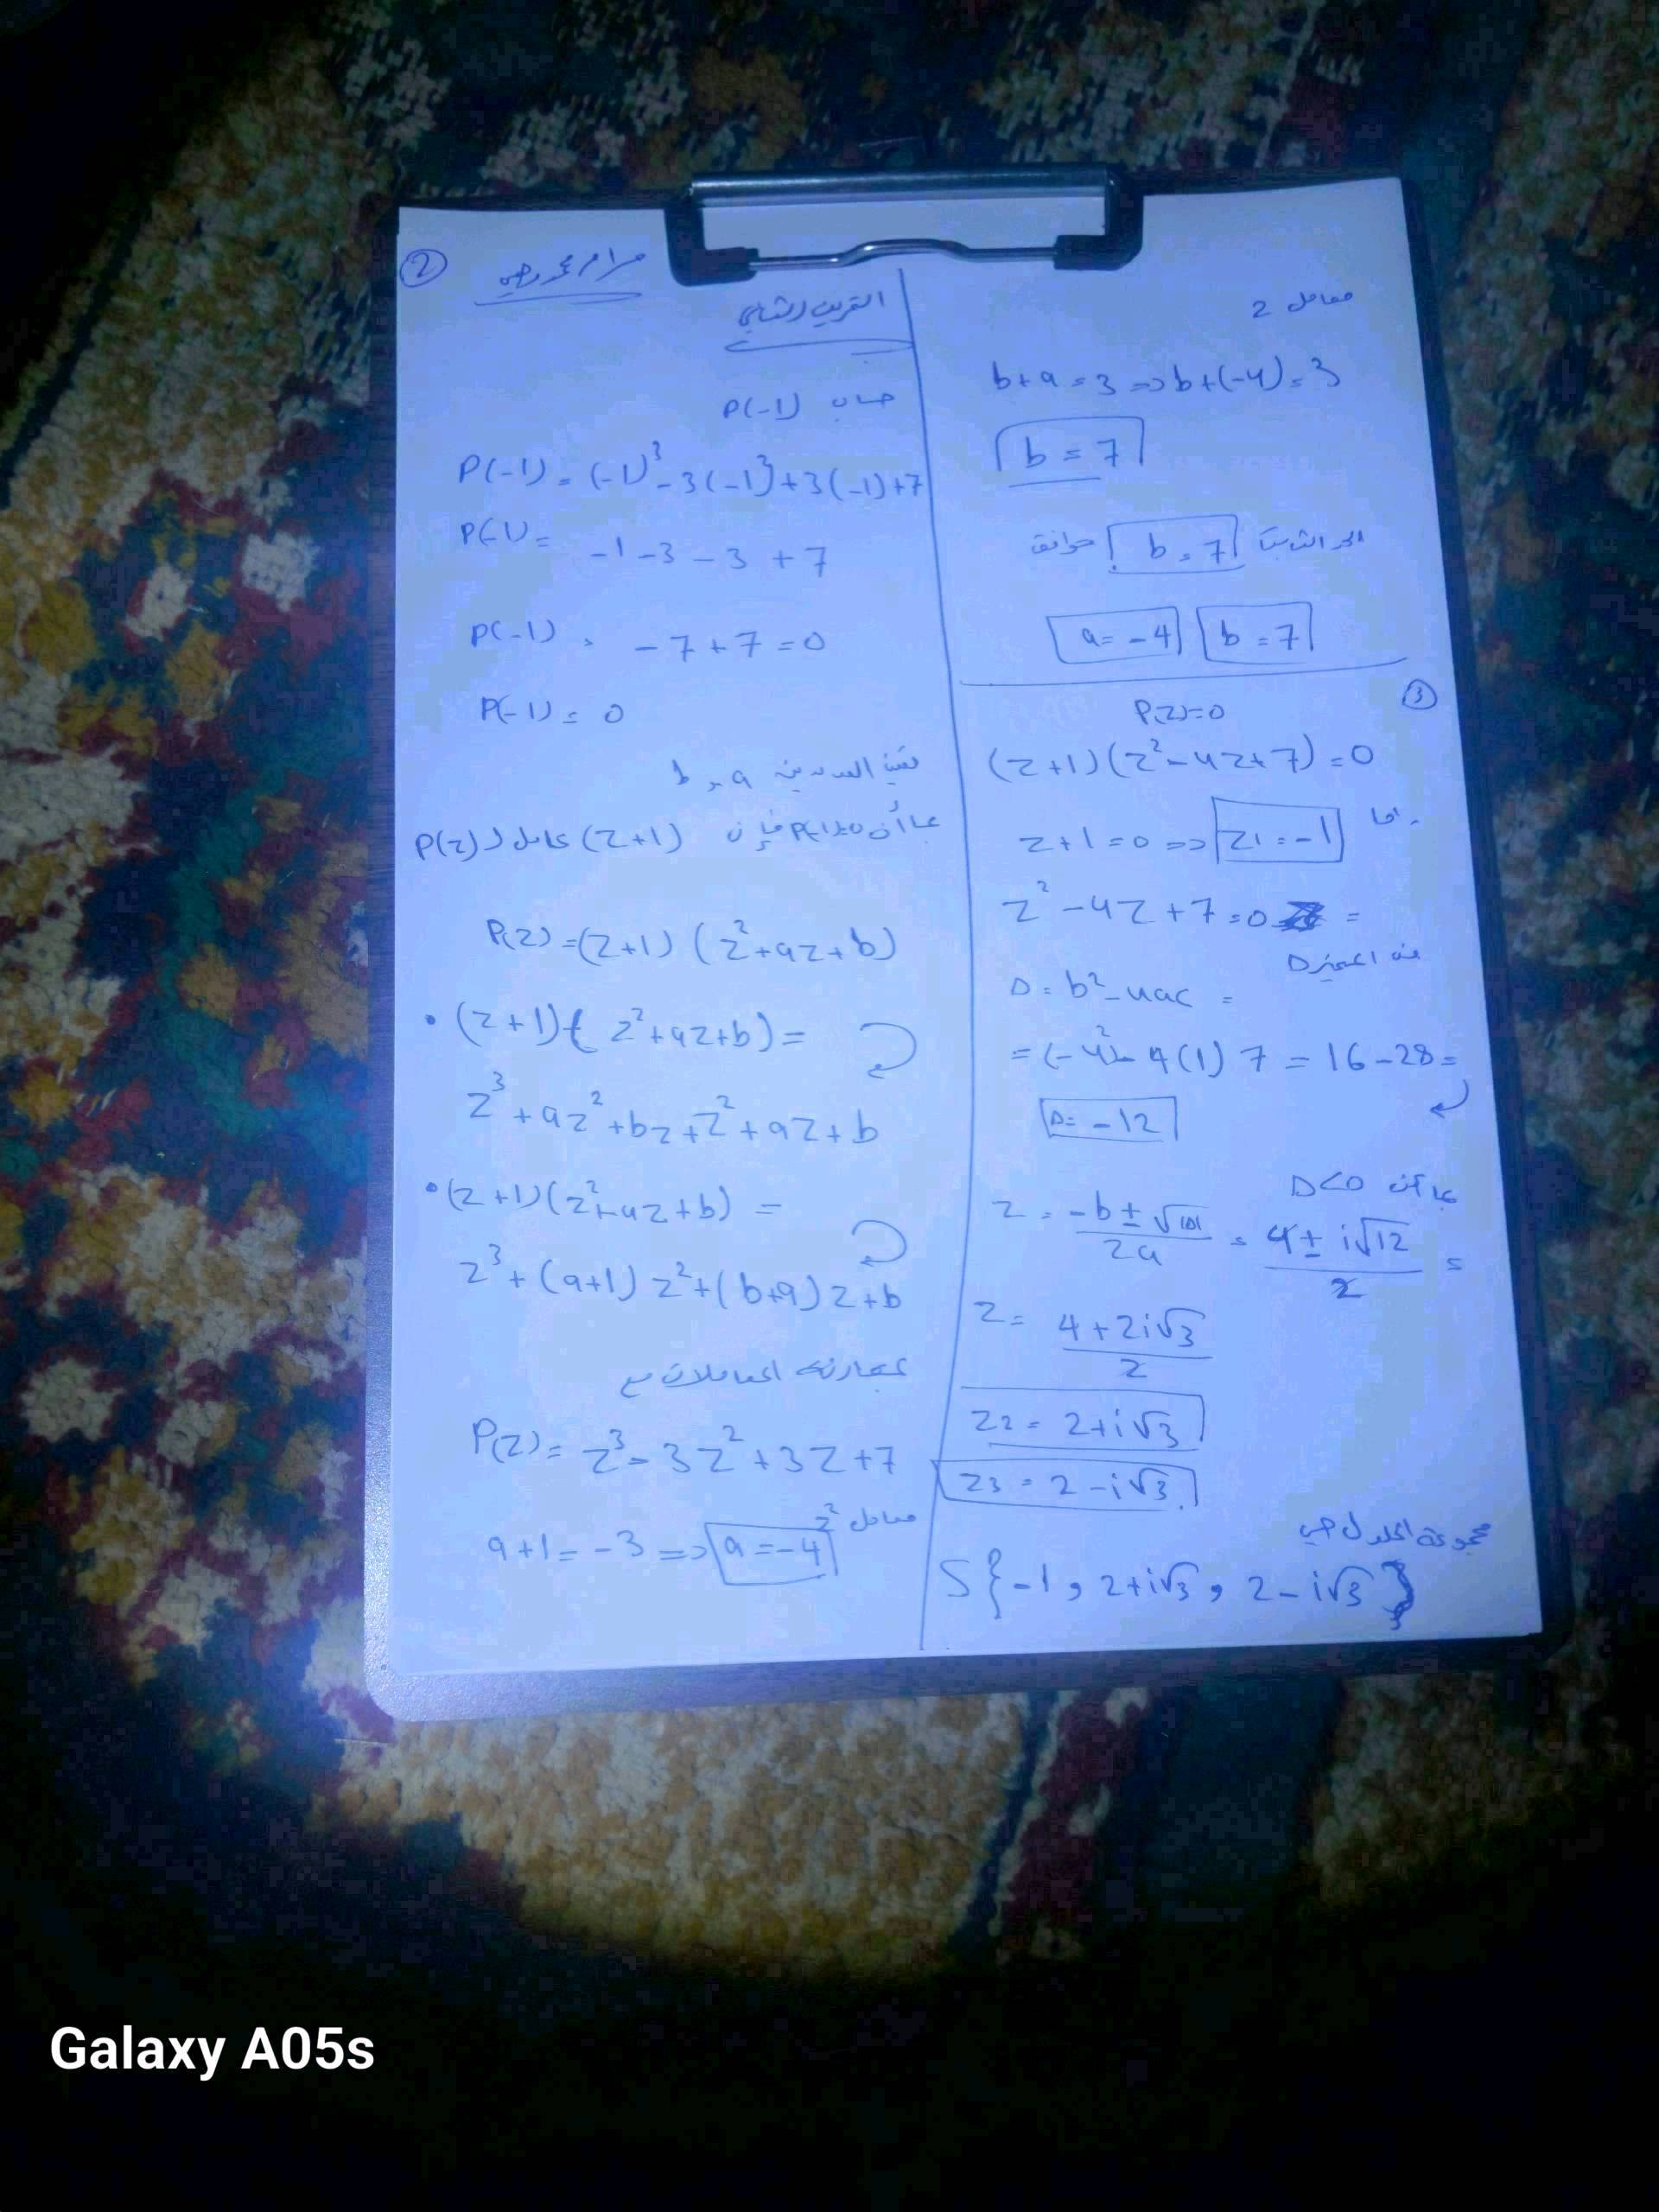 ②
التمرين الثاني
حساب P(-1)
P(-1) = (-1)³ - 3(-1)² + 3(-1) + 7
P(-1) = -1 - 3 - 3 + 7
P(-1) = -7 + 7 = 0
P(-1) = 0
نعين العددين a و b
بما أن P(-1)=0 فإن (z+1) عامل لـ P(z)
P(z) = (z+1) (z²+az+b)
• (z+1)(z²+az+b) =
z³ + az² + bz + z² + az + b
• (z+1)(z²+az+b) =
z³ + (a+1) z² + (b+a) z + b
بمقارنة المعاملات مع
P(z) = z³ - 3z² + 3z + 7
معامل z²
a+1 = -3 => a = -4
معامل z
b+a = 3 => b+(-4) = 3
b = 7
الحد الثابت b = 7 موافق
a = -4 b = 7
③
P(z)=0
(z+1)(z²-4z+7) = 0
اما z+1=0 => z1 = -1
z² - 4z + 7 = 0 =
من المميز Δ
Δ = b² - 4ac =
= (-4)² - 4(1) 7 = 16 - 28 =
Δ = -12
بما أن Δ<0
z = -b ± √|Δ| / 2a = 4 ± i√12 / 2 =
z = 4 + 2i√3 / 2
z2 = 2 + i√3
z3 = 2 - i√3
مجموعة الحلول هي
S{-1 , 2+i√3 , 2-i√3}
Galaxy A05s